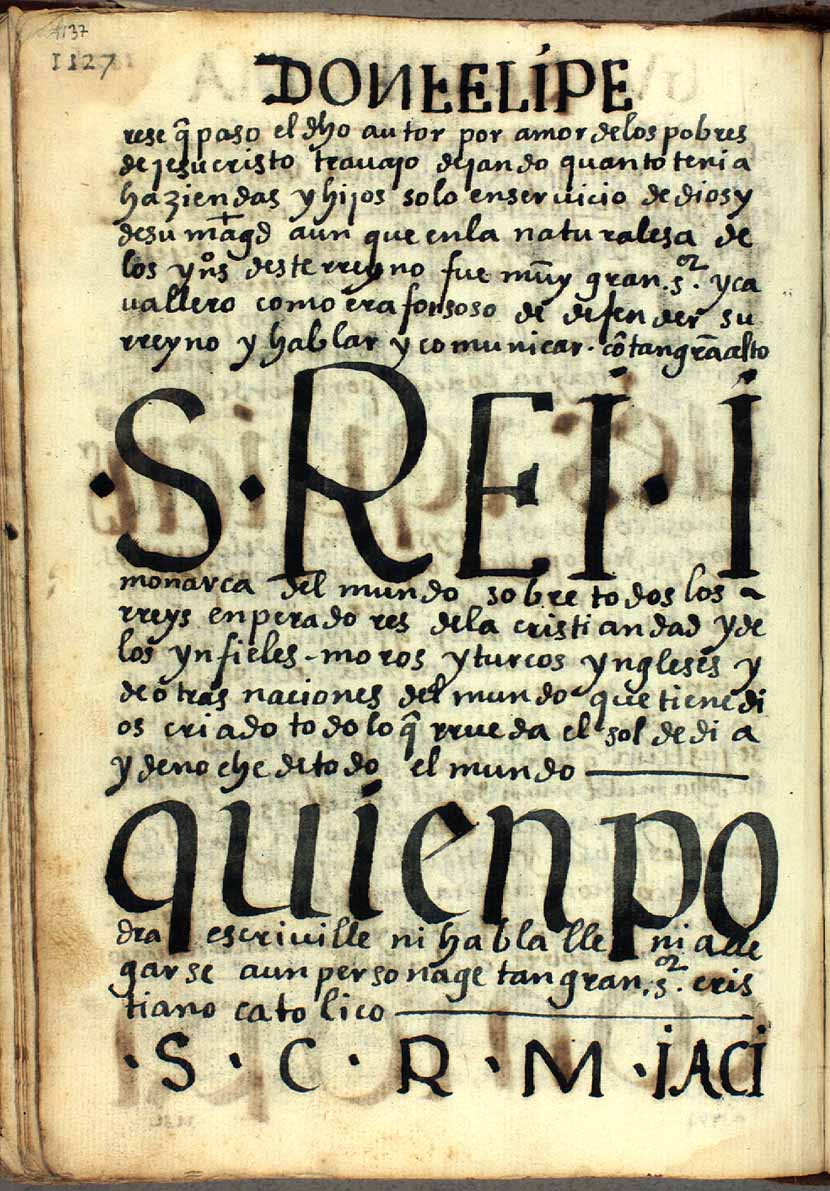 1137
1127
DON FELIPE
rese q̃ paso el dho autor por amor de los pobres
de jesucristo travajo dejando quanto tenia
haziendas y hijos solo en servicio de dios y
de su magd aun que en la naturalesa de
los ynos deste rreyno fue muy gran. sor. y ca
vallero como era forsoso de defender su
rreyno y hablar y comunicar. cõ tan grã alto
·S·REI·I
monarca del mundo sobre todos los
rreys enperadores de la cristiandad y de
los ynfieles - moros y turcos yngleses y
de otras naciones del mundo que tiene di
os criado todo lo q̃ rrueda el sol de dia
y de noche de todo el mundo
quien po
dra escriville ni hablalle ni alle
garse a un personage tan gran. sor. cris
tiano catolico
·S·C·R·M·IACI